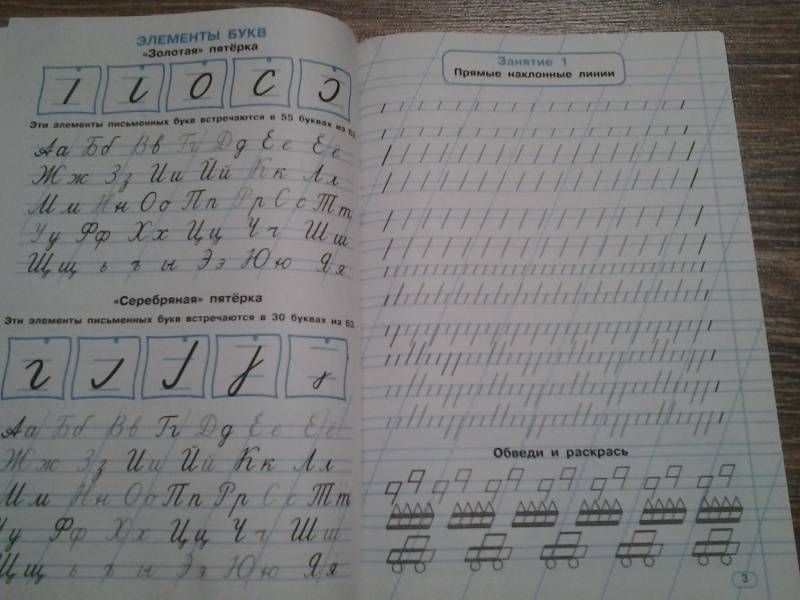 ЭЛЕМЕНТЫ БУКВ
«Золотая» пятёрка
Эти элементы письменных букв встречаются в 55 буквах из 63.
Аа Бб Вв Гг Дд Ее Ёё
Жж Зз Ии Йй Кк Лл
Мм Нн Оо Пп Рр Сс Тт
Уу Фф Хх Цц Чч Шш
Щщ ь ъ ы Ээ Юю Яя
«Серебряная» пятёрка
Эти элементы письменных букв встречаются в 30 буквах из 63.
Аа Бб Вв Гг Дд Ее Ёё
Жж Зз Ии Йй Кк Лл
Мм Нн Оо Пп Рр Сс Тт
Уу Фф Хх Цц Чч Шш
Щщ ь ъ ы Ээ Юю Яя
Занятие 1
Прямые наклонные линии
Обведи и раскрась
3